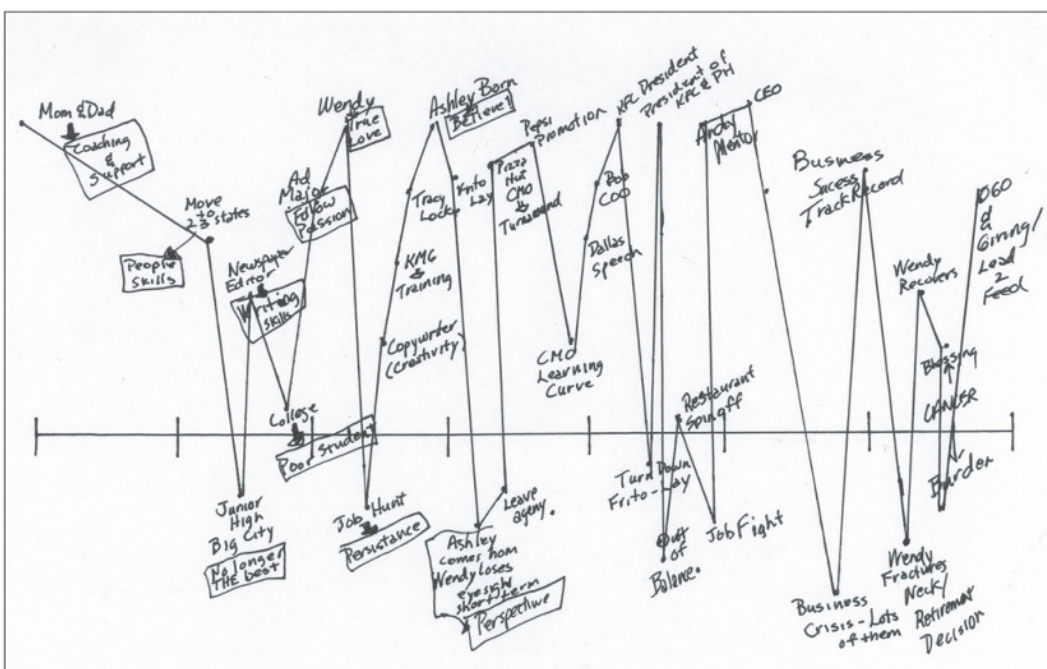 Mom & Dad
Coaching
&
Support
Move
to
2-3 states
People
Skills
Junior
High
Big City
No longer
THE best
Newspaper
Editor
Writing
Skills
College
Poor Student
Ad
Major
Follow
Passion
Wendy
True
Love
Job Hunt
Persistance
Copywriter
(Creativity)
KMG
Training
Tracy
Locke
Ashley Born
Believe!
Ashley
comes hom
Wendy loses
eyesight
short term
Perspective
Leave
ageny.
Frito
Lay
Pizza
Hut
CMO
Turnaround
Pepsi
Promotion
CMO
Learning
Curve
Dallas
Speech
COO
KFC President
President of
KFC & PH
Turn Down
Frito-Lay
Out
of
Balance.
Restaurant
Spinoff
Job Fight
Andy
Mentor
CEO
Business
Crisis - Lots
of them
Business
Sucess
Track Record
Wendy
Fractures
Neck/
Retirement
Decision
Wendy
Recovers
Blessing
CANCER
Burden
OGO
&
Giving/
Lead
2
Feed